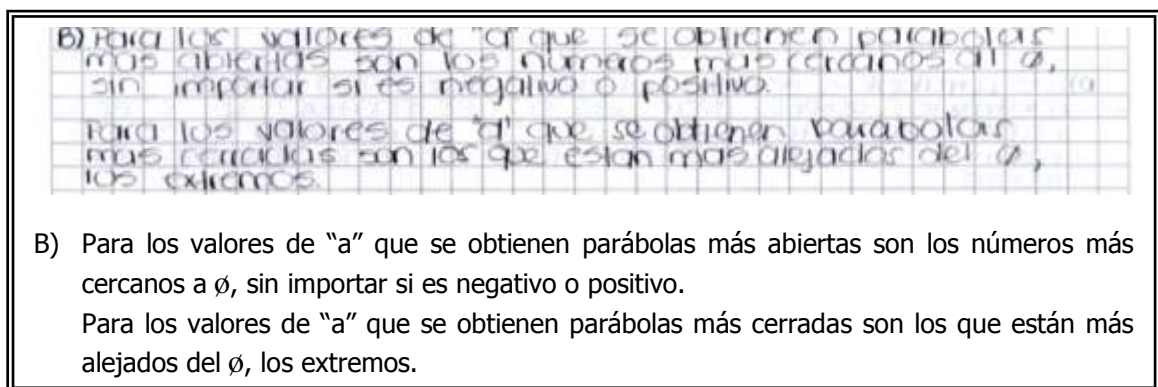 B) Para los valores de "a" que se obtienen parabolas
mas abiertas son los números mas cercanos al ø,
sin importar si es negativo o positivo.
Para los valores de "a" que se obtienen parabolas
mas cerradas son los que estan mas alejados del ø,
los extremos.
B) Para los valores de “a” que se obtienen parábolas más abiertas son los números más
cercanos a ø, sin importar si es negativo o positivo.
Para los valores de “a” que se obtienen parábolas más cerradas son los que están más
alejados del ø, los extremos.